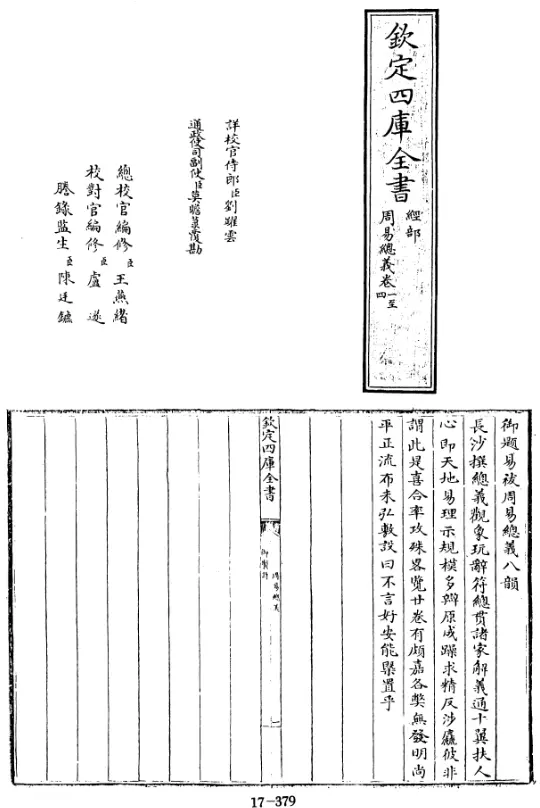 欽定四庫全書
經部
周易總義卷一至四
詳校官侍郎臣劉躍雲
通政使司副使臣莫瞻菉覆勘
總校官編修臣王燕緒
校對官編修臣盧遂
謄錄監生臣陳廷鑣
御題易祓周易總義八韻
長沙撰總義觀象玩辭符總貫諸家解義通十翼扶人
心即天地易理示規模多辨原成躁求精反涉麤彼非
謂此是喜合率攻殊畧覽廿卷有頗嘉各獘無發明尚
平正流布未弘敷設曰不言好安能㮣置乎
欽定四庫全書
周易總義
御製詩
一
17-379